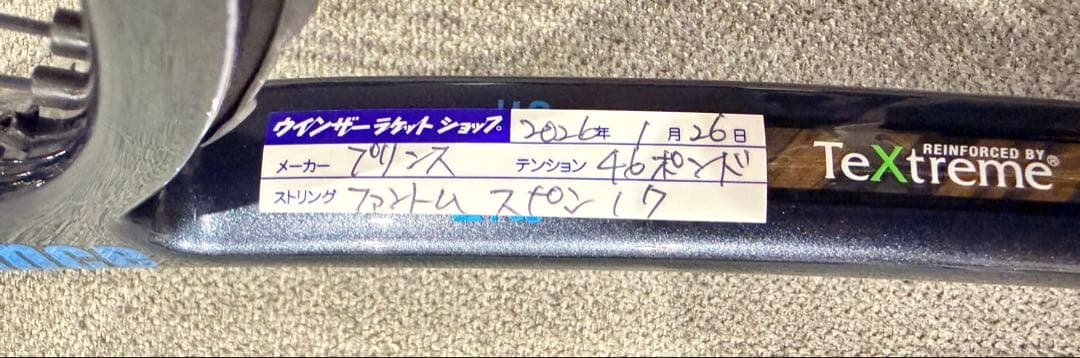 ウインザー ラケット ショップ。 2026年 1月26日
メーカー プリンス テンション 46ポンド
ストリング ファントム スピン 17
REINFORCED BY
TeXtreme®
nce